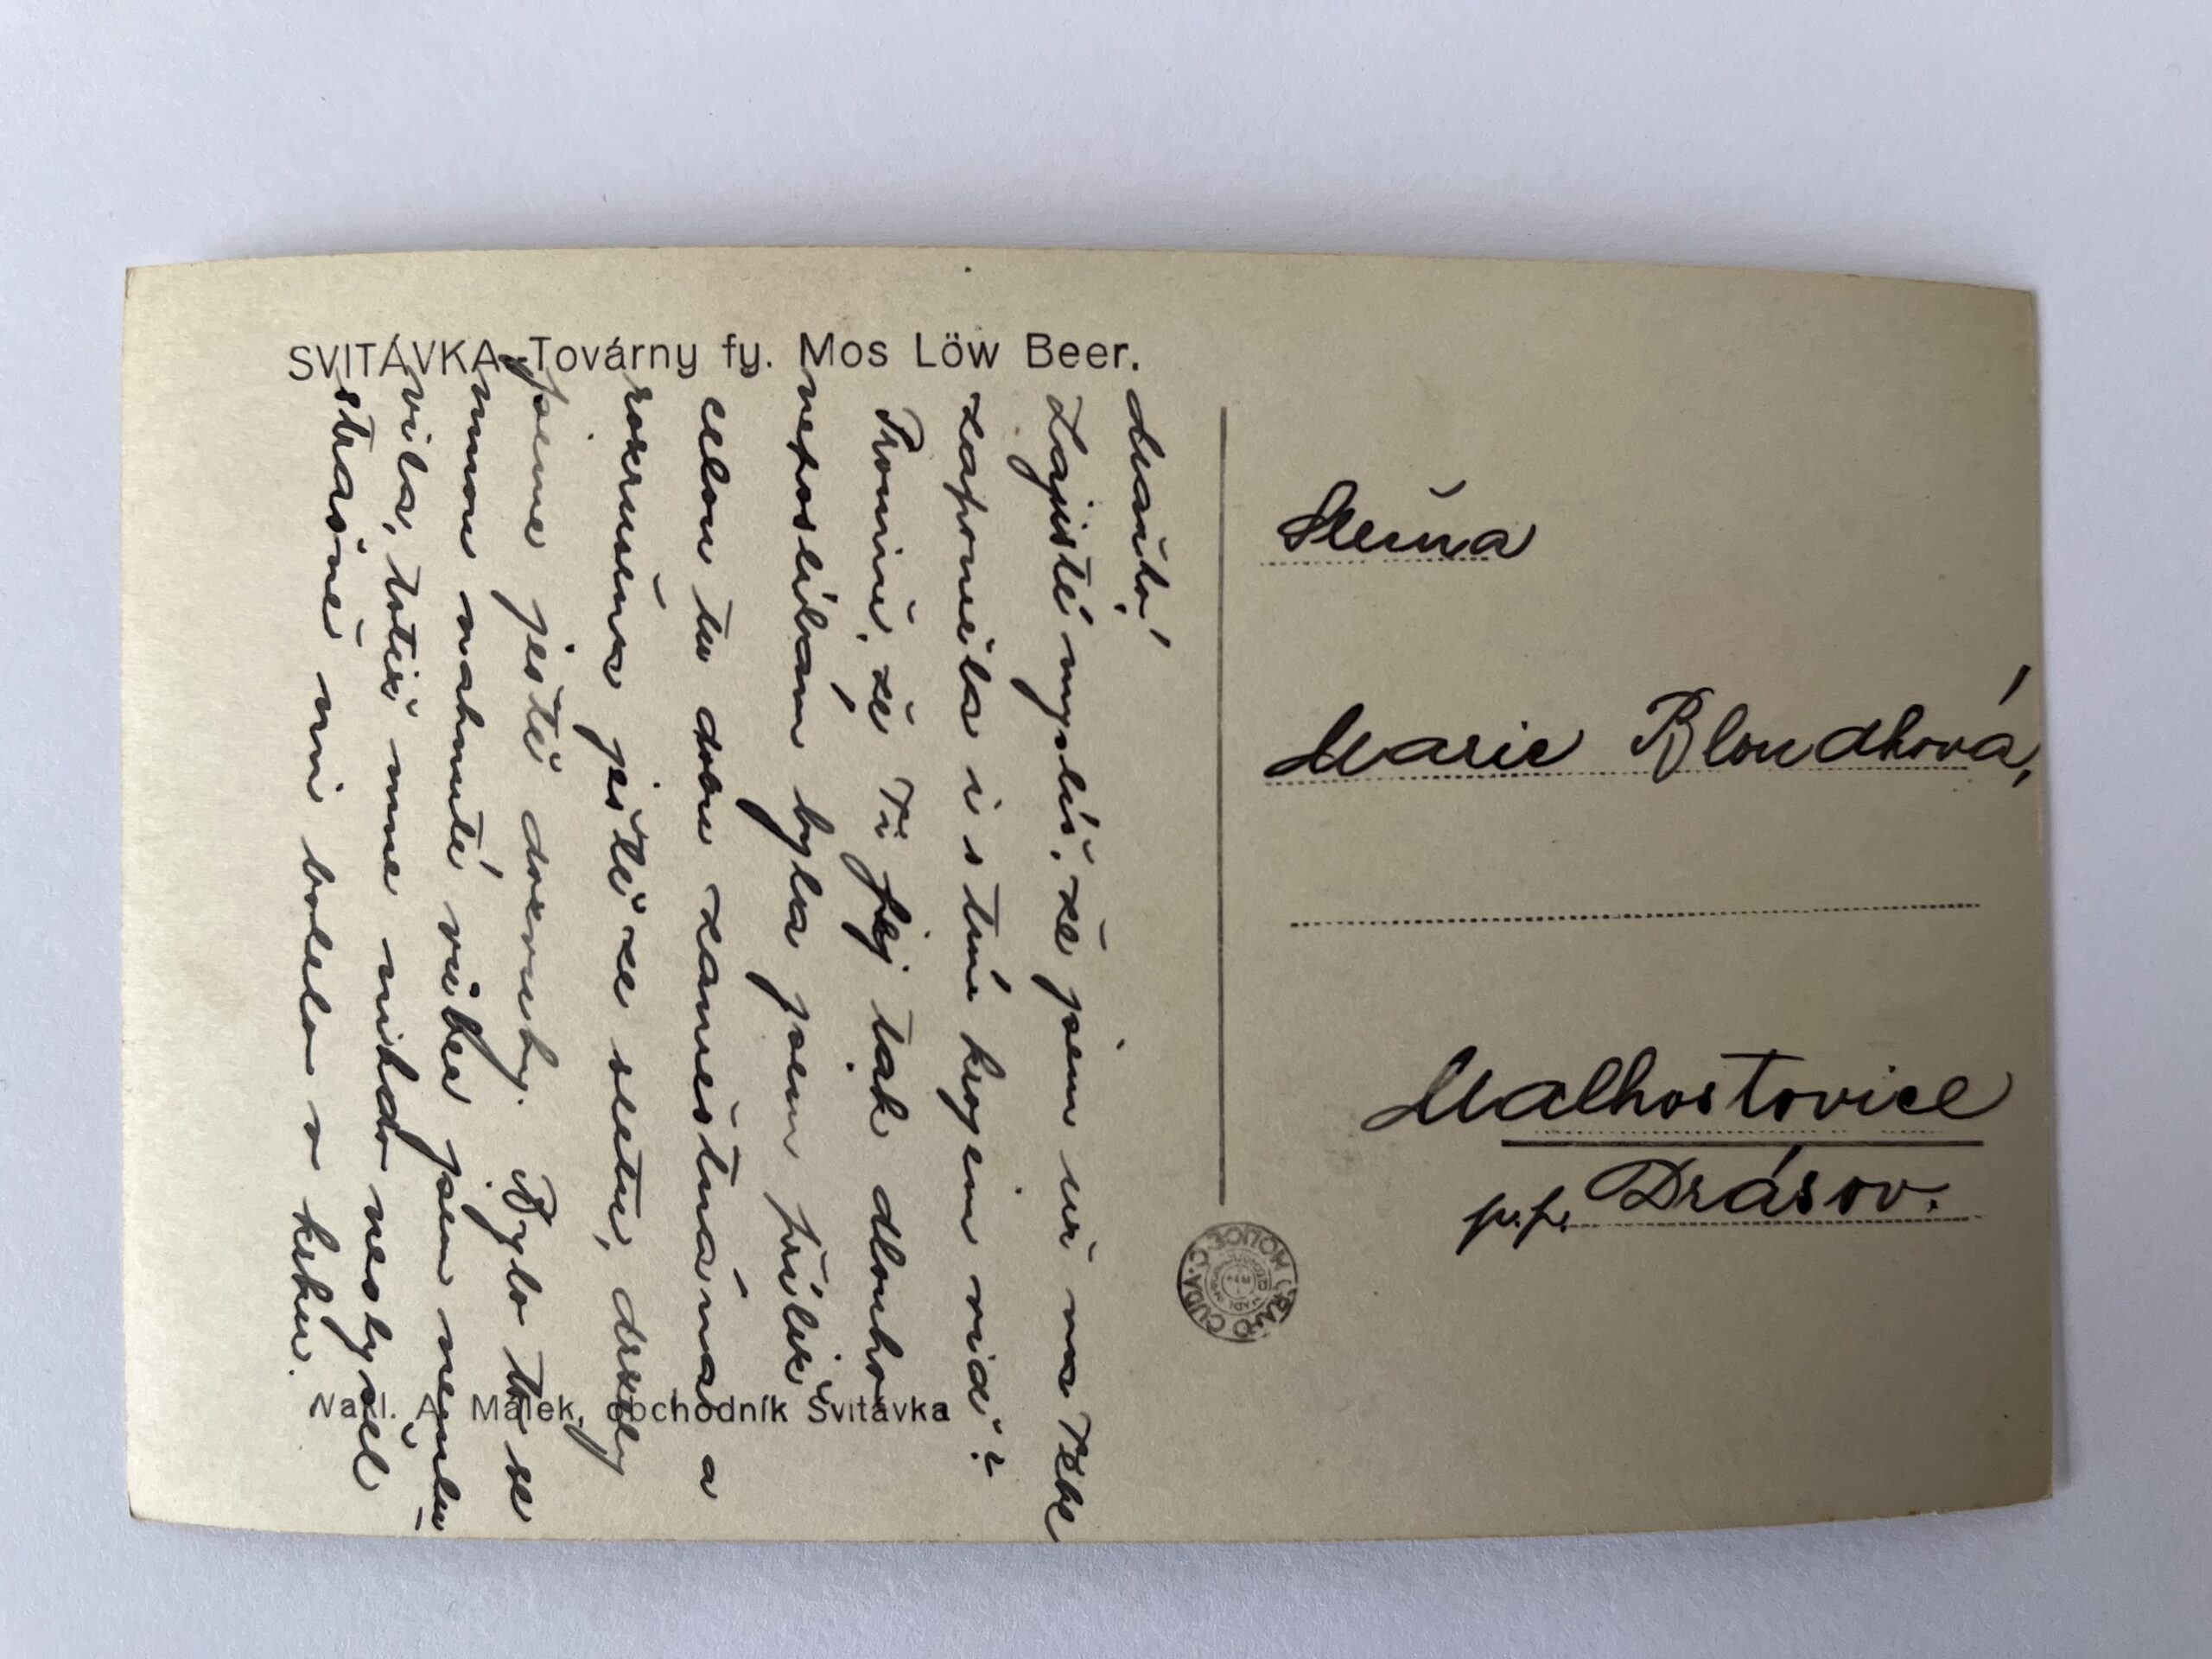 SVITÁVKA-Továrny fy. Mos Löw Beer.
Mařko!
Zajisté myslíš, že jsem už na Tebe
zapoměla i s tím krojem viď?
Promiň, že Ti jej tak dlouho
neposílám byla jsem přílíž
celou tu dobu zaměstnána a
rozrušena ještě ze sletu, drželi
jsme ještě dozvuky. Bylo to se
mnou nahnuté vůbec jsem nemlu-
vila, totiž mne nikdo neslyšel
strašně mi bolelo v krku.
Nakl. A. Málek, obchodník Svitávka
Slečna
Marie Bloudková,
Malhostovice
p.p. Drásov.